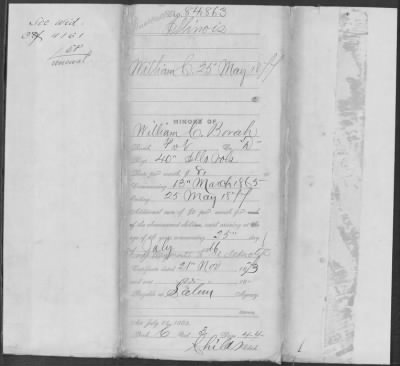 See Wid.
Ctf. 4161
No. 84863
Illinois
William C. 25 May 1877
MINORS OF
William C. Borah
Rank, Pvt Co. "D"
Reg't 40" Ills Vols
Rate per month, $ 8,
Commencing 13" March 1865
Ending 25 May 1877
Additional sum of $2 per month for each
of the abovenamed children, until arriving at the
age of 16 years, commencing 25" day
of July 66
Certificate dated 21" Nov 1873
and sent
Payable at Salem Agency
Act July 14, 1862.
Book C Vol. 3 Page 44
Childress
1